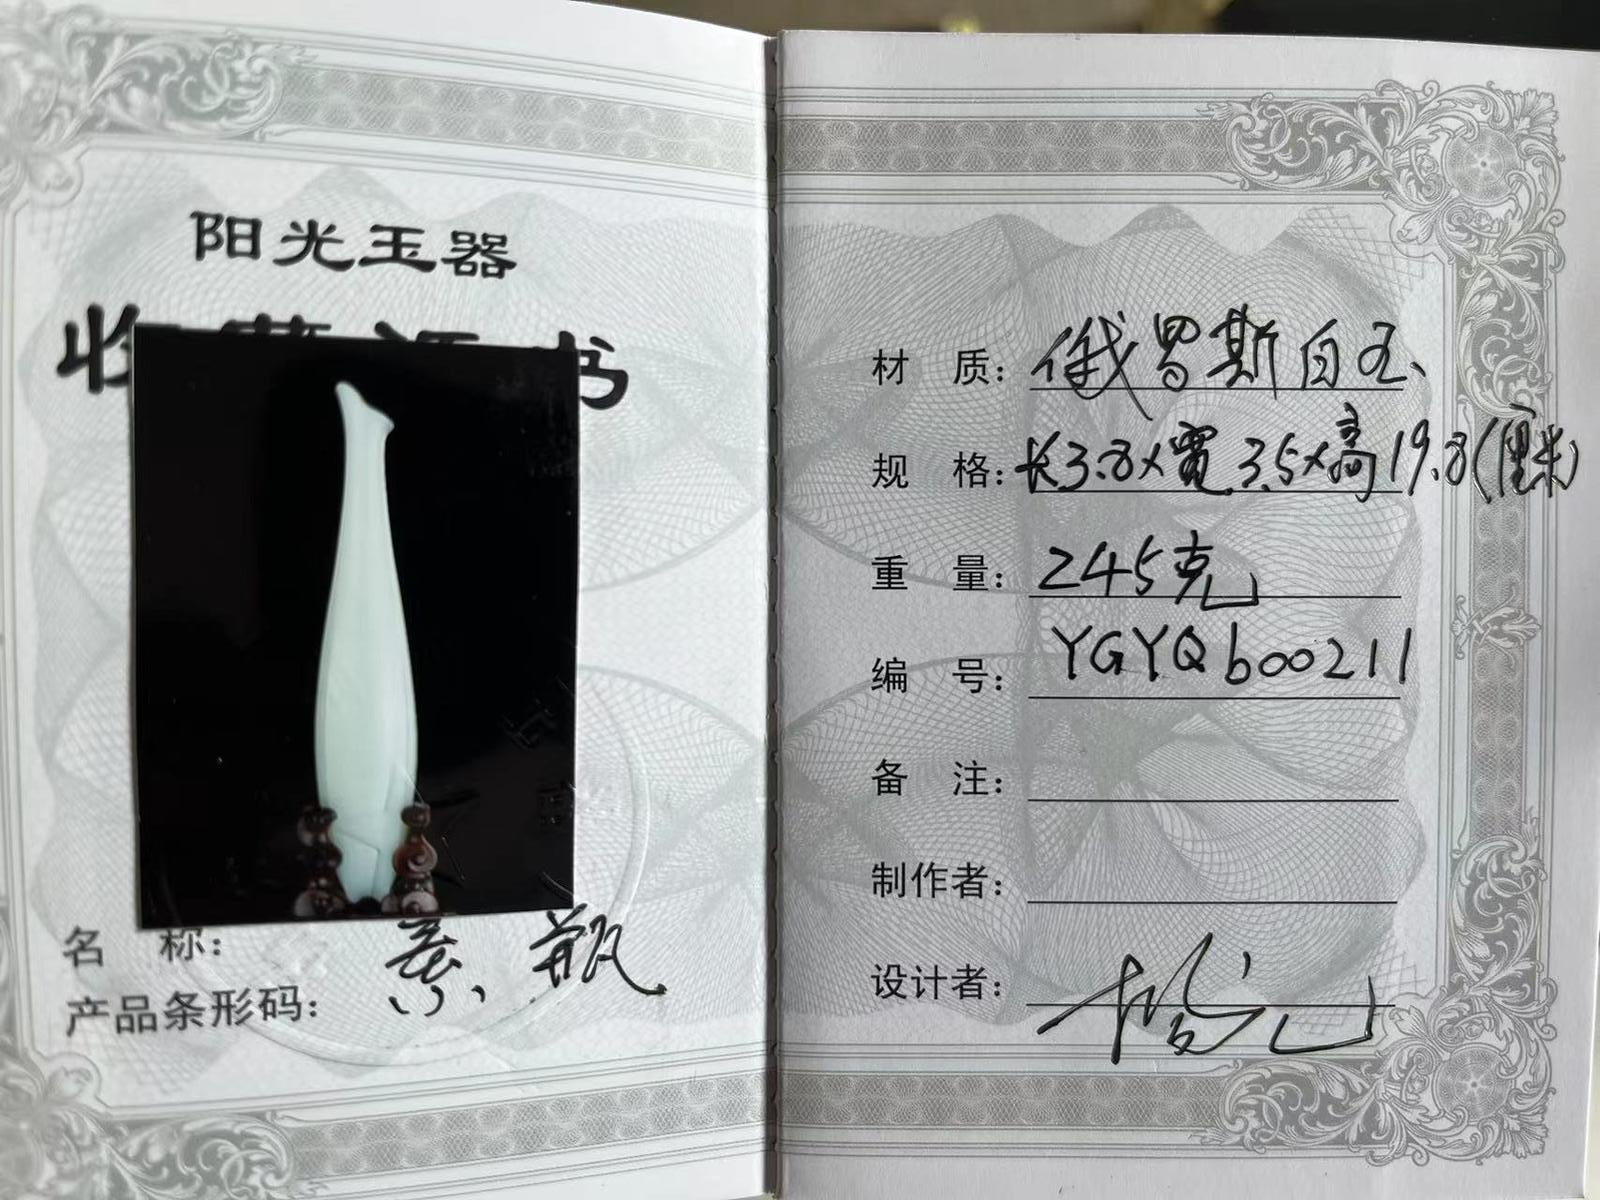 阳光玉器
收藏证书
名 称: 素瓶
产品条形码:
材 质: 俄罗斯白玉
规 格: 长3.8×宽3.5×高19.8(厘米)
重 量: 245克
编 号: YGYQb00211
备 注:
制作者:
设计者: